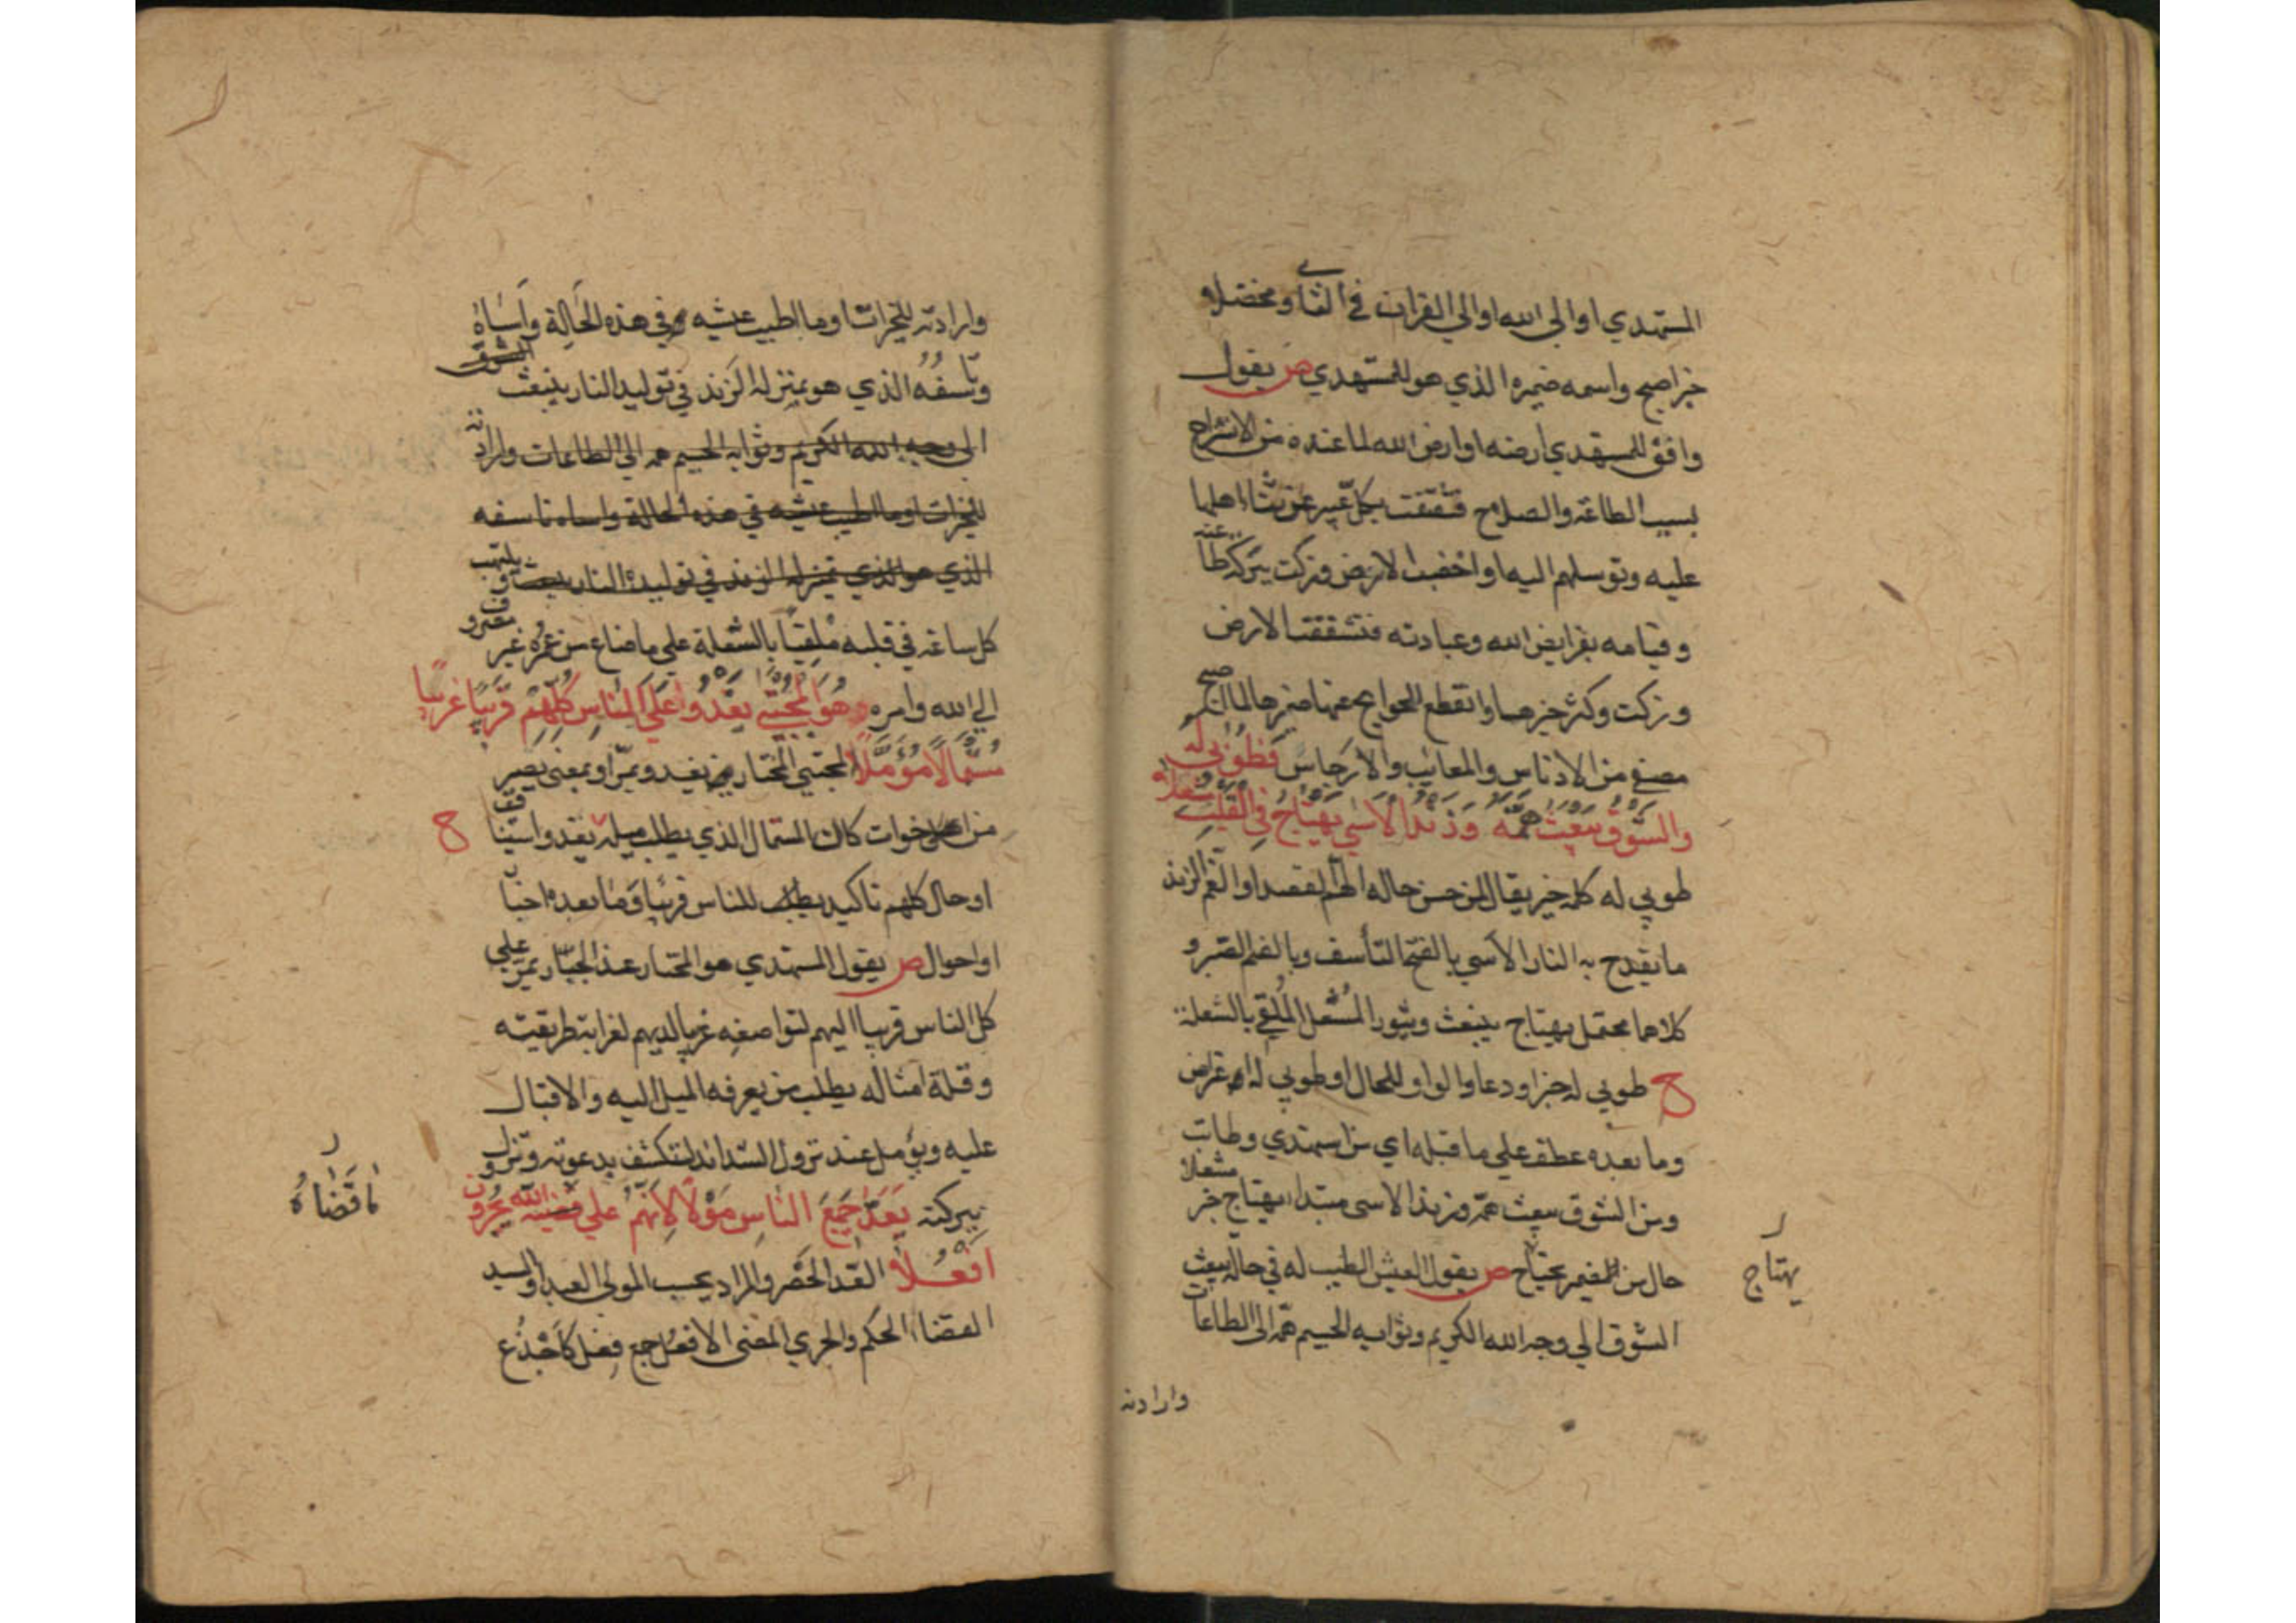 المستهدي او الي الله او الي القران في الثاني ومخضلا
خبر اصبح واسمه ضميره الذي هو للمستهدي ص يقول
وافق للمستهدي ارضه او ارض الله لما عنده من الانشراح
بسبب الطاعة والصلاح فتفتقت بكل عبير عن ثناء اهلها
عليه وتوسلهم اليها او اخضبت الارض وزكت ببركة طاعته
وقيامه بفرايض الله وعبادته فتشققت الارض
وزكت وكثر خيرها وانقطع الحوايج عنها ضير حالما اصبح
مصفي من الادناس والمعائب والارجاس فطوبي له
والشوق يبعث همه وزند الاسي يهتاج في القلب مشعلا
طوبي له كلمة خير يقال لمن حسن حاله الهم القصد او الغم الزند
ما يقدح به النار الاسي بالفتح التأسف وبالضم الصبر و
كلاهما محتمل يهتاج ينبعث ويثور المشعل الملقي بالشعلة
ح طوبي له خبر او دعا والواو للحال او طوبي له اعتراض
وما بعده عطف علي ما قبله اي من استهدي وطابت
ومن الشوق يبعث همه وزند الاسي مبتدا يهتاج خبر مشعلا
حال من الضمير يحتاج ص يقول العيش الطيب له في حالة يبعث
الشوق الي وجه الله الكريم وثوابه الجسيم همه الي الطاعات
يهتاج
وارادته
وارادته للخيرات وما اطيب عيشه في هذه الحالة واساه
وتاسفه الذي هو بمنزلة الزند في توليد النار ينبعث الشوق
الي وجه الله الكريم وثوابه الجسيم همه الي الطاعات وارادته
للخيرات وما اطيب عيشه في هذه الحالة واساه تاسفه
الذي هو الذي بمنزلة الزند في توليد النار يلتهب
كل ساعة في قلبه ملقيا بالشعلة علي ما ضاع من عمره غير مصروف
الي الله وامره هو المجتبي يغدو علي الناس كلهم قريبا غريبا
مستمالا مؤملا المجتبي المختار يغدو يمر او بمعني يصير
من اخوات كان المستمال الذي يطلب ميله يغدو استينا ف ح
او حال كلهم تاكيد للناس قريبا وما بعده اخبا
او احوال ص يقول المستهدي هو المختار عند الجبار يمر علي
كل الناس قريبا اليهم لتواضعه غريبا لديهم لغرابة طريقته
وقلة امثاله يطلب من يعرفه الميل اليه والاقبال
عليه ويؤمل عند نزول الشدائد لتكشف بدعوته وتزول
ببركته يعد جميع الناس مولا لانهم علي الله يجرون
افعلا العد الحصر والمراد يحسب المولي العبد او السيد
القضاء الحكم والجري المضي الافعل جمع فعل كاجذع
ما قضاه